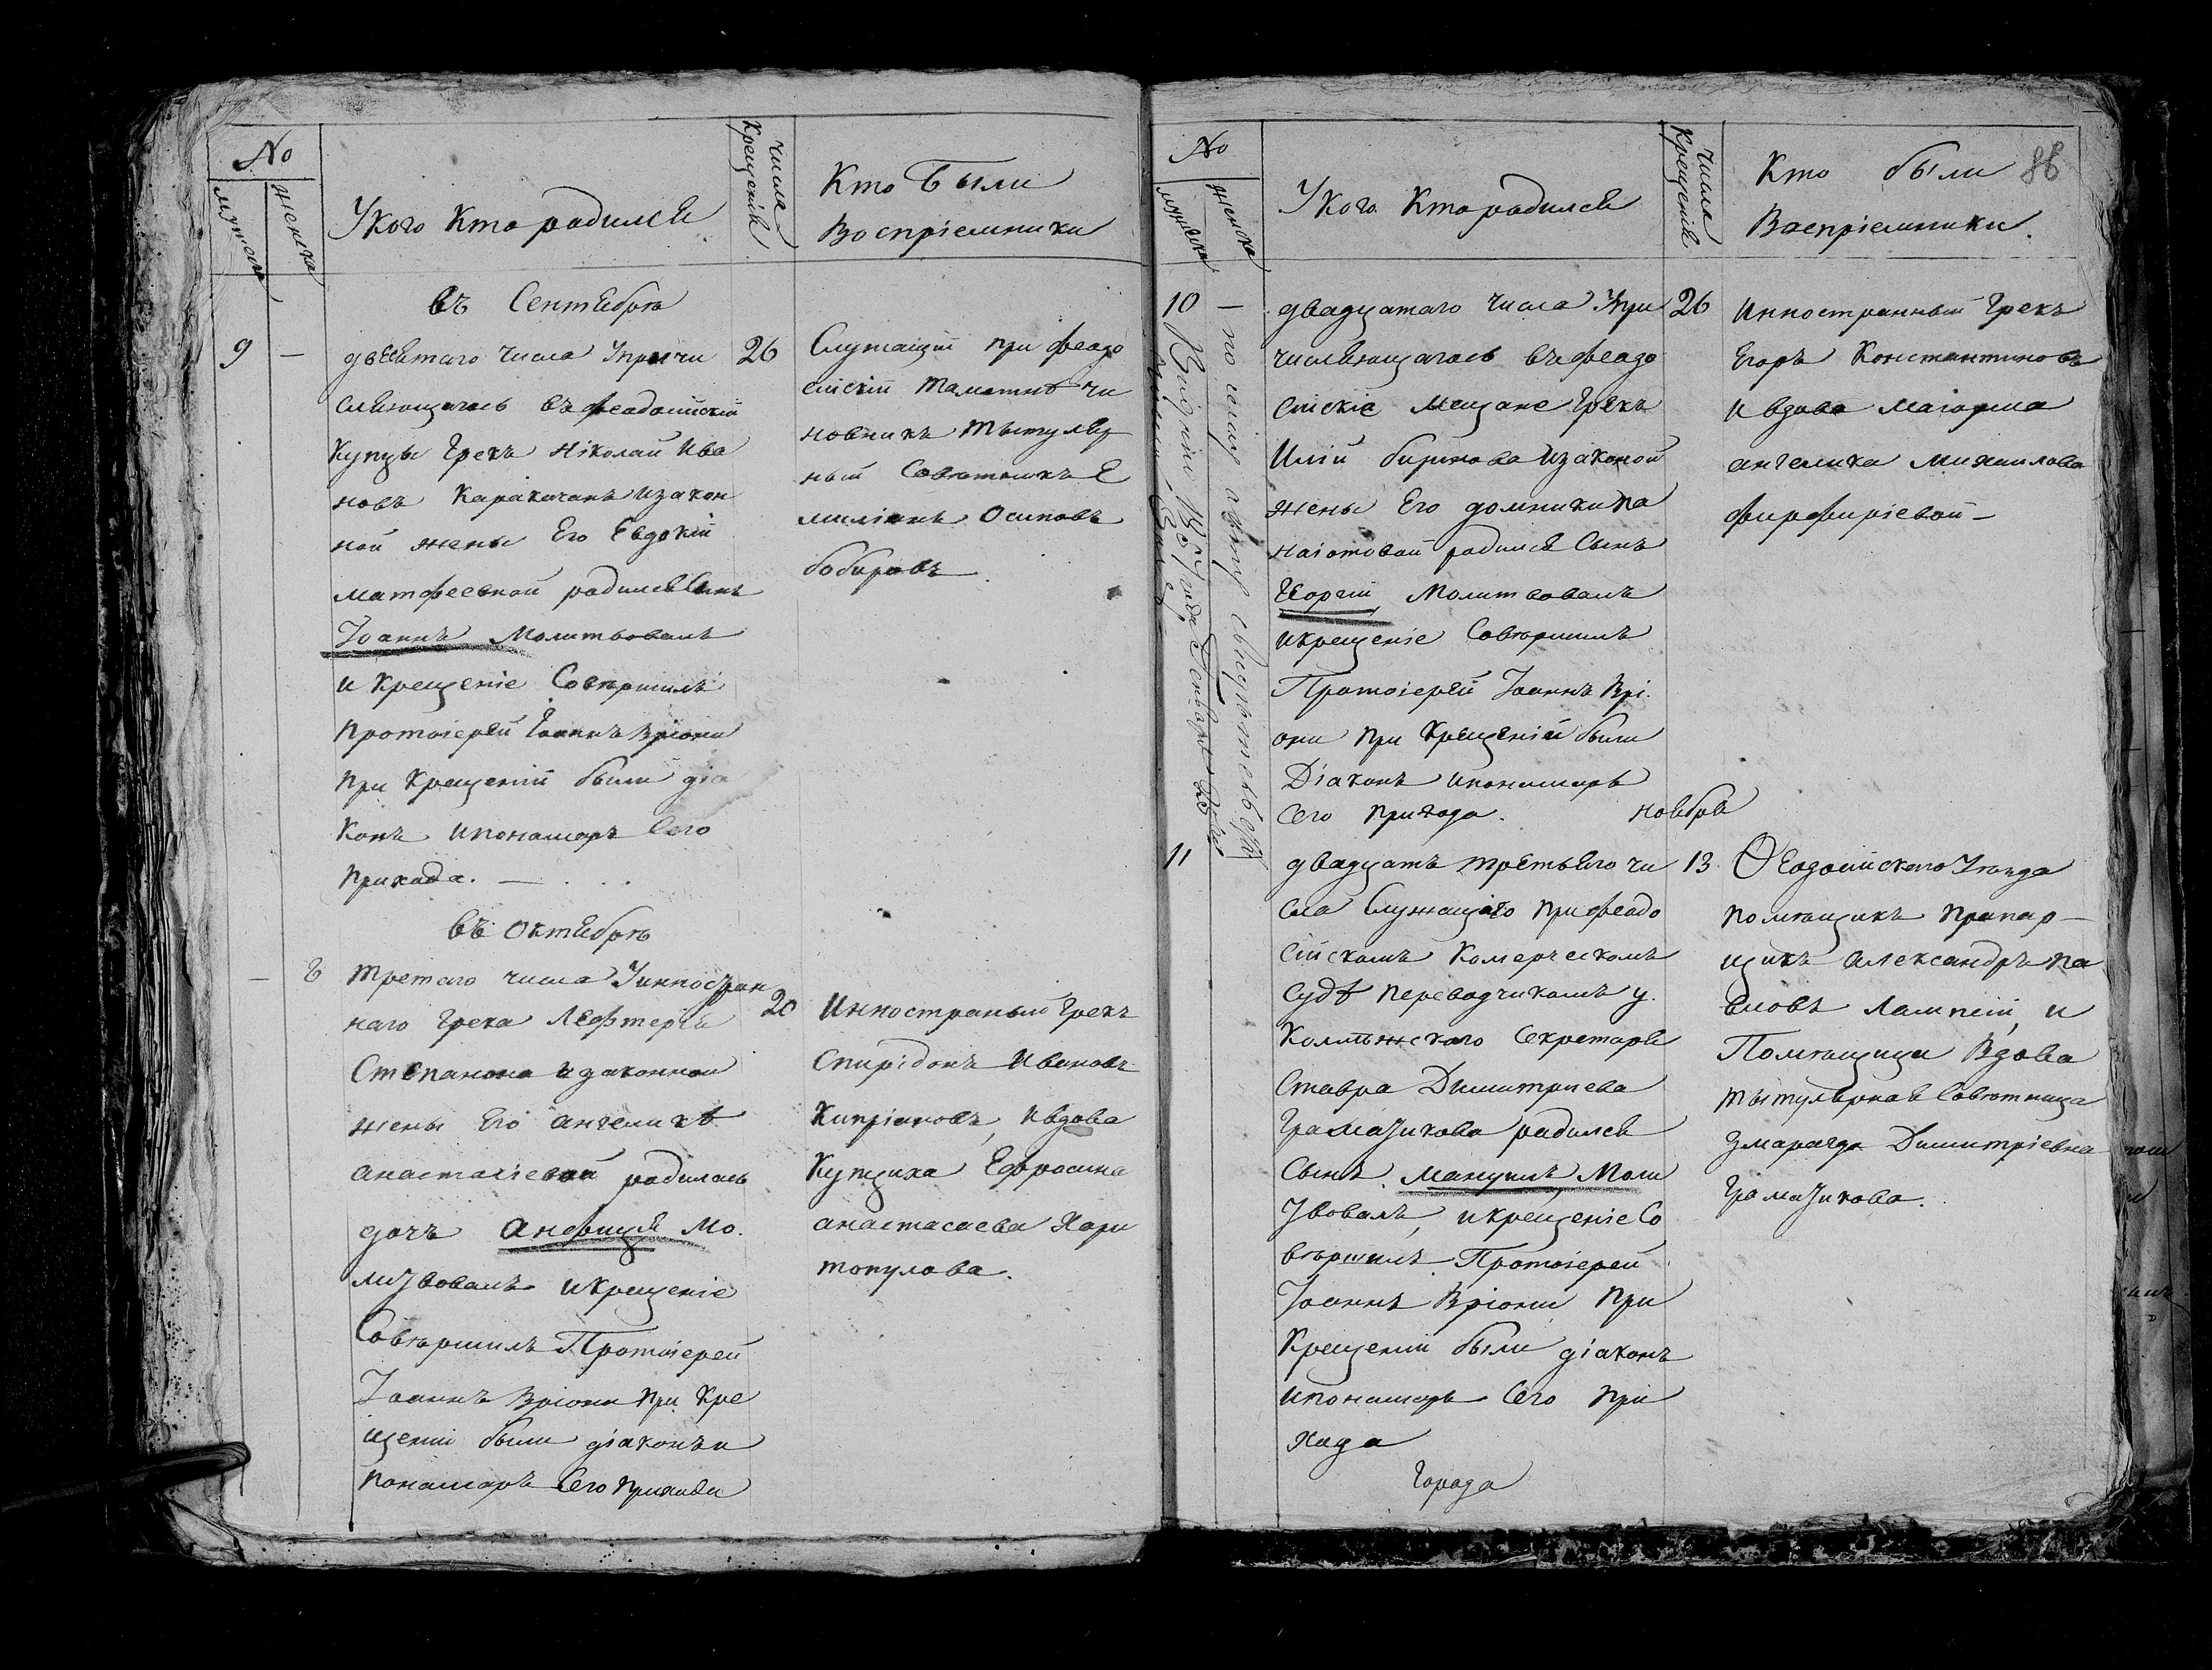 No
мужска
женска
У кого Кто родился
Числа
Крещенія
Кто Были
Воспріемники
въ Сентебрѣ
9 — девятаго числа У причи 26
сляющагось въ феодосійскій
Купцы Грекъ Ніколай Ива
новъ Каракачанъ изакон
ной жены Его Евдокій
матфеевной родился Сынъ
Іоаннъ Молитвовалъ
и Крещеніе Совѣршилъ
протоіерей Іоаннъ Вріони
при Крещеній были діа
конъ ипонамарь Сего
прихода. —
Служащій при феодо
сійскій Таможнѣ чи
новникъ тытуляр
ный Совѣтникъ Е
миліанъ Осиповъ
бобировъ
въ Октебрѣ
— 8 Третаго числа Уинностран 20
наго Грека Лефтерія
Степанова изаконной
жены Его ангеликѣ
анастасіевой родилась
дочъ Анфиція Мо.
литвовалъ икрещеніе
Совѣршилъ Протоіерей
Іоаннъ Вріони при Кре
щеній были діаконъ и
понамарь Сего прихода
Инностраный Грекъ
Спирідонъ Ивановъ
Кипріановъ, Ивдова
Купчиха Ефросина
анастасаева Хари
топулова.
No
мужска
женска
У кого Кто родился
Числа
Крещенія
Кто были
Воспріемники.
88
10 — двадцатаго числа Упри 26
численощагось въ феодо
сійскіе мещане Грекъ
Илій бирнова изаконой
жены Его домники Па
наіотовой родился Сынъ
Георгій Молитвовалъ
икрещеніе Совѣршилъ
Протоіерей Іоаннъ Врі.
они при Крещеній были
Діаконъ ипонамарь
Сего прихода.
Инностранный Грекъ
Егоръ Константиновъ
и вдова маіорша
ангелика михаилова
фирфиріевой —
по сему акту свидѣтельство
Выдано 1867 года Генваря
ноебре
11 двадцать третьяго чи 13
сла Служащаго при феодо
сійскомъ Комерческомъ
Судѣ переводчикомъ у.
Колѣжскаго Секретаре
Ставра Димитриева
Граматикова родился
Сынъ Мануилъ Моли
твовалъ, икрещеніе Со
вѣршилъ Протоіерей
Іоаннъ Вріони При
Крещеніи были діаконъ
ипонамарь Сего При
хода
Города
Ѳеодосійскаго Уѣзда
помѣщикъ Прапор—
щикъ Александръ Па
вловъ Лампсій, и
Помѣщица Вдова
тытулярная Совѣтница
Змарагда Димитріевна
Граматикова.